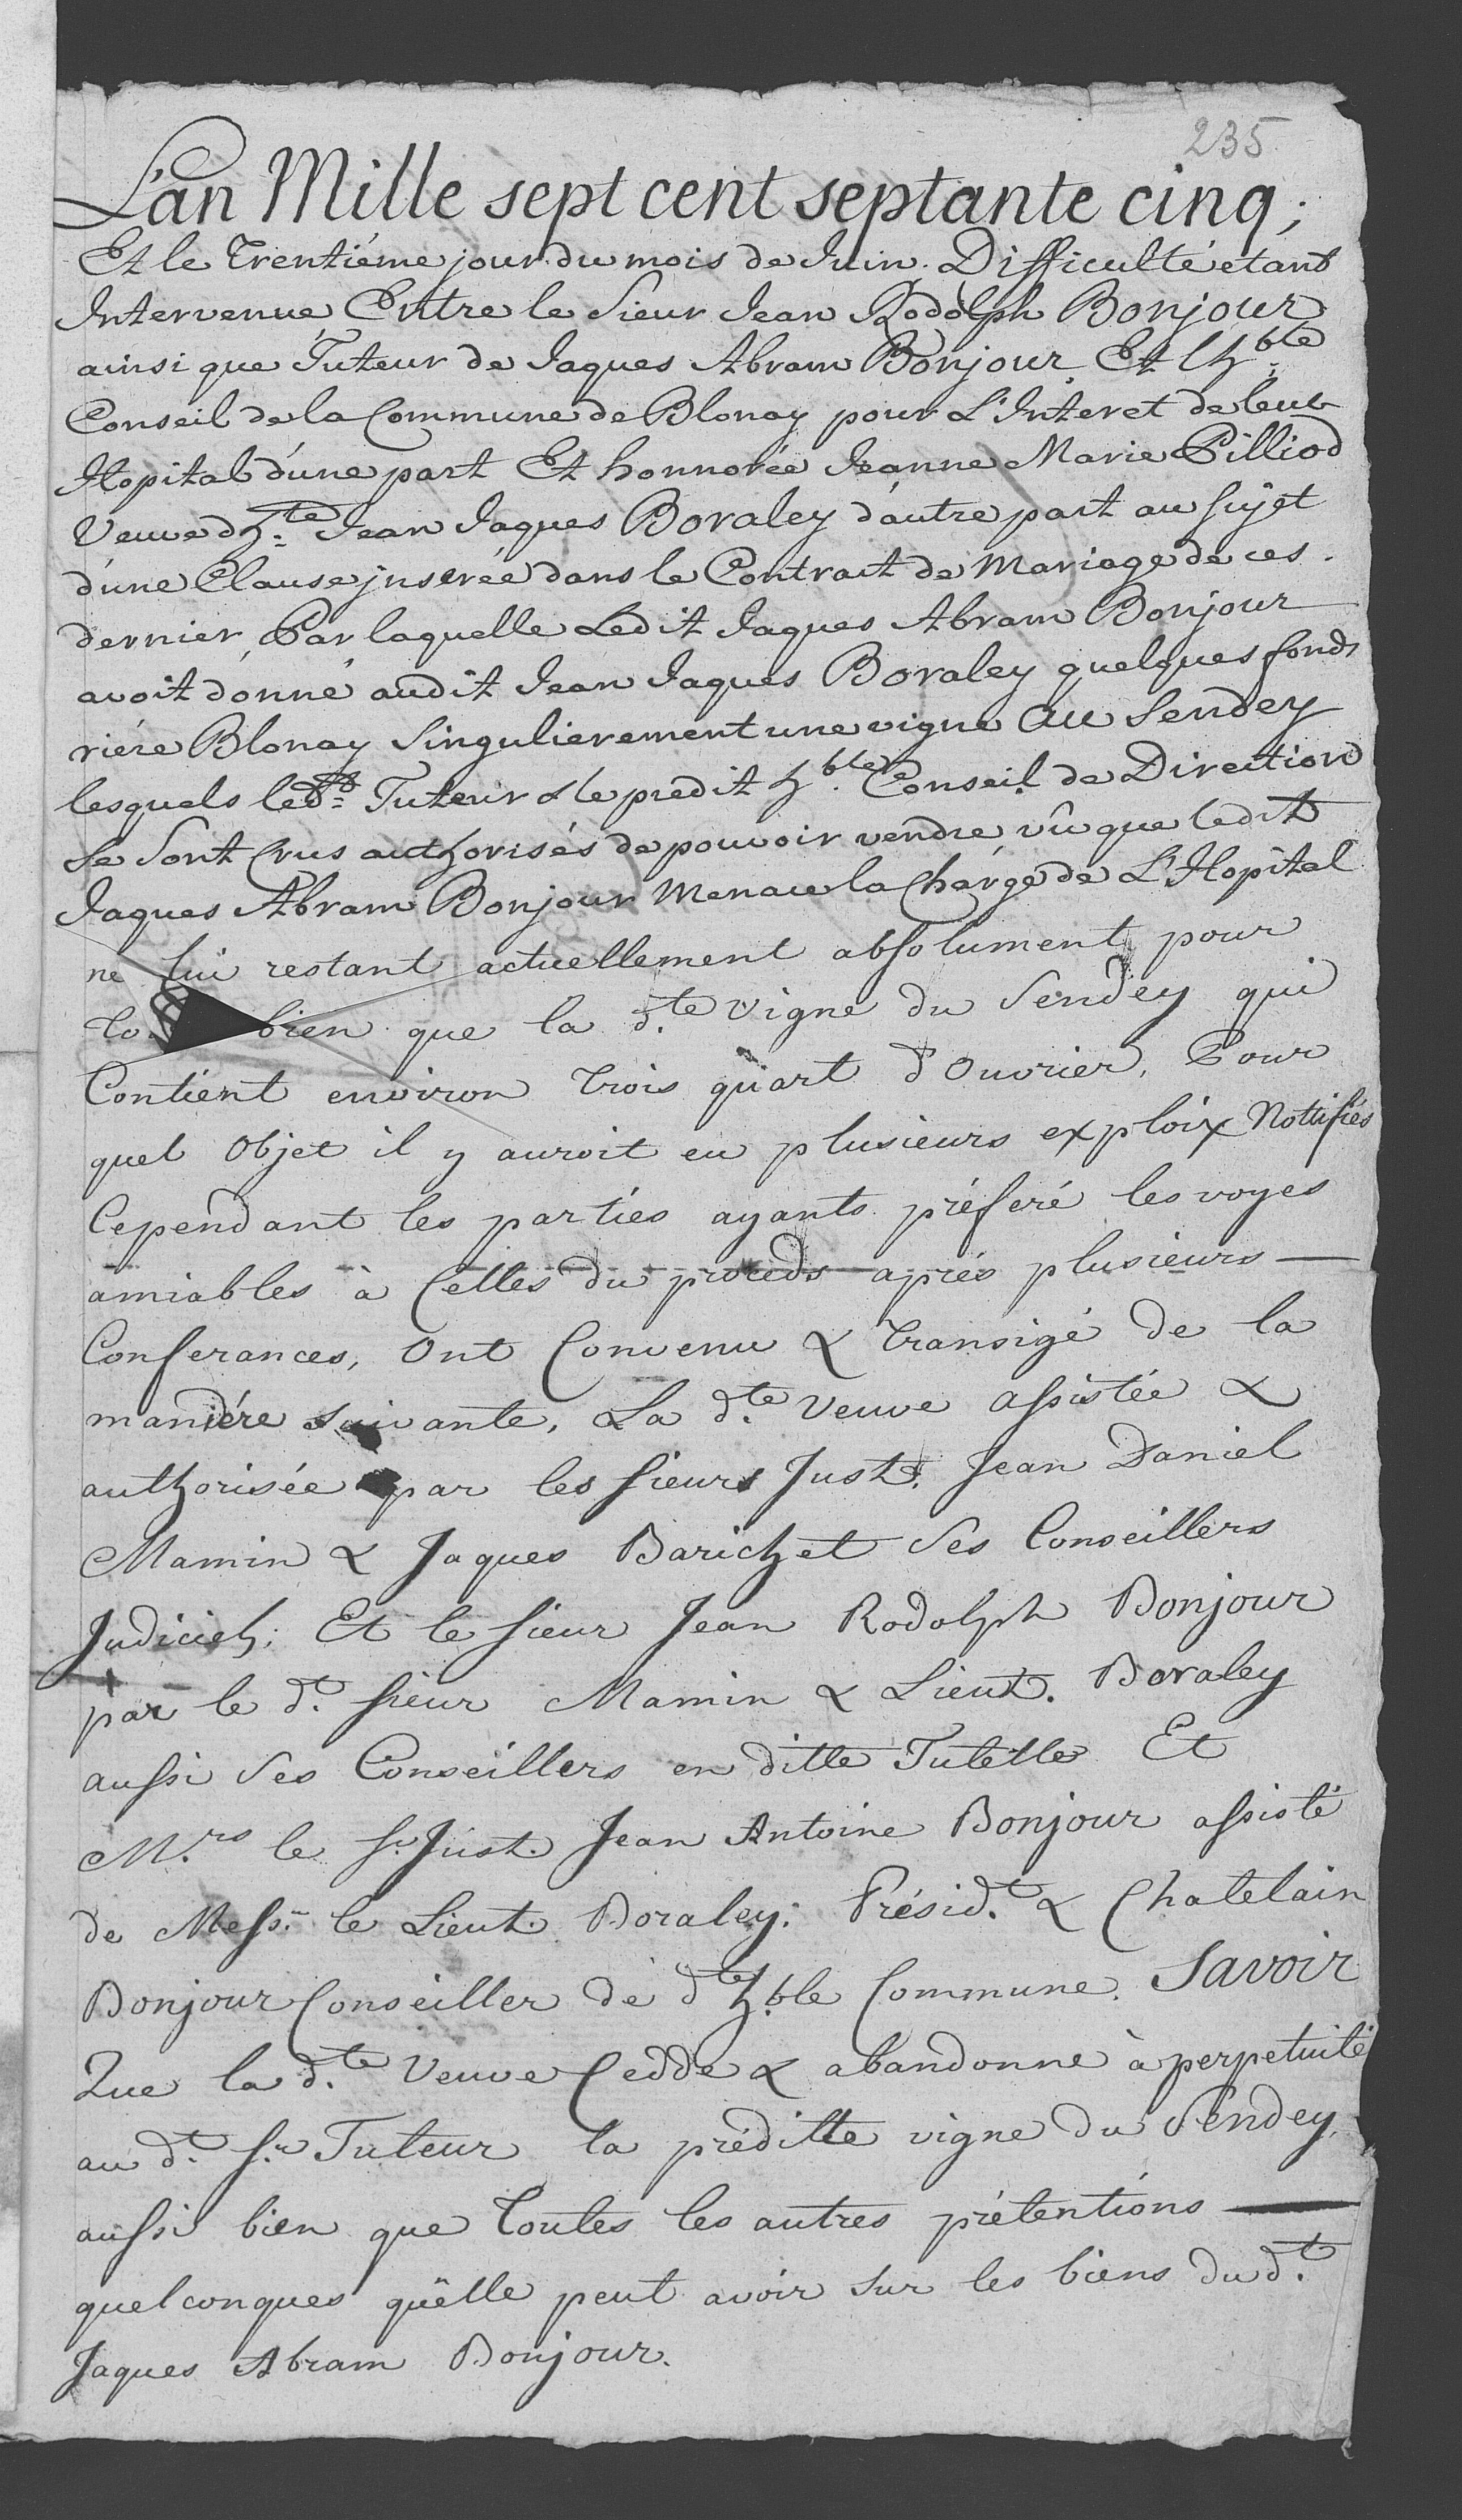 235
L'an Mille sept cent septante cinq;
Et le Trentiéme jour du mois de Juin. Difficulté etant
Intervenue Entre le Sieur Jean Rodolph Bonjour
ainsi que Tuteur de Jaques Abram Bonjour Et l'h.ble
Conseil de la Commune de Blonay pour L'Interet de leur
Hopital d'une part Et honnorée Jeanne Marie Pilliod
Veuve d'h.te Jean Jaques Boraley d'autre part au sujet
d'une Clause jnserée dans le Contract de Mariage de ces
dernier, Par laquelle Ledit Jaques Abram Bonjour
avoit donné audit Jean Jaques Boraley quelques fonds
riére Blonay Singulierement une vigne au Sendey
lesquels led.t Tuteur & le predit h.ble Conseil de Direction
se sont Crus authorisés de pouvoir vendre vû que ledit
Jaques Abram Bonjour Menace la Charge de L'Hopital
ne lui restant actuellement absolument pour
bien que la d.te Vigne du Sendey qui
Contient environ trois quart d'Ouvrier, Pour
quel Objet il y auroit eu plusieurs exploix Nottifiés
Cependant les parties ayants préferé les voyes
amiables à Celles du proceds après plusieurs
Conferances, Ont Convenu & transigé de la
maniére suivante, La d.te Veuve assistée &
authorisée par les sieurs Just. Jean Daniel
Mamin & Jaques Barichet ses Conseillers
Judiciels; Et le sieur Jean Rodolph Bonjour
par le d.t sieur Mamin & Lieut. Boraley
aussi ses Conseillers en ditte Tutelle Et
M.rs le S.r Just. Jean Antoine Bonjour assisté
de Mess.rs le Lieut. Boraley, Présid.t & Chatelain
Bonjour Conseiller de d.te h.ble Commune. Savoir
Que la d.te Veuve Cedde & abandonne à perpetuité
au d.t S.r Tuteur la préditte vigne du Sendey,
aussi bien que toutes les autres prétentions
quelconques qu'elle peut avoir sur les biens du d.t
Jaques Abram Bonjour.